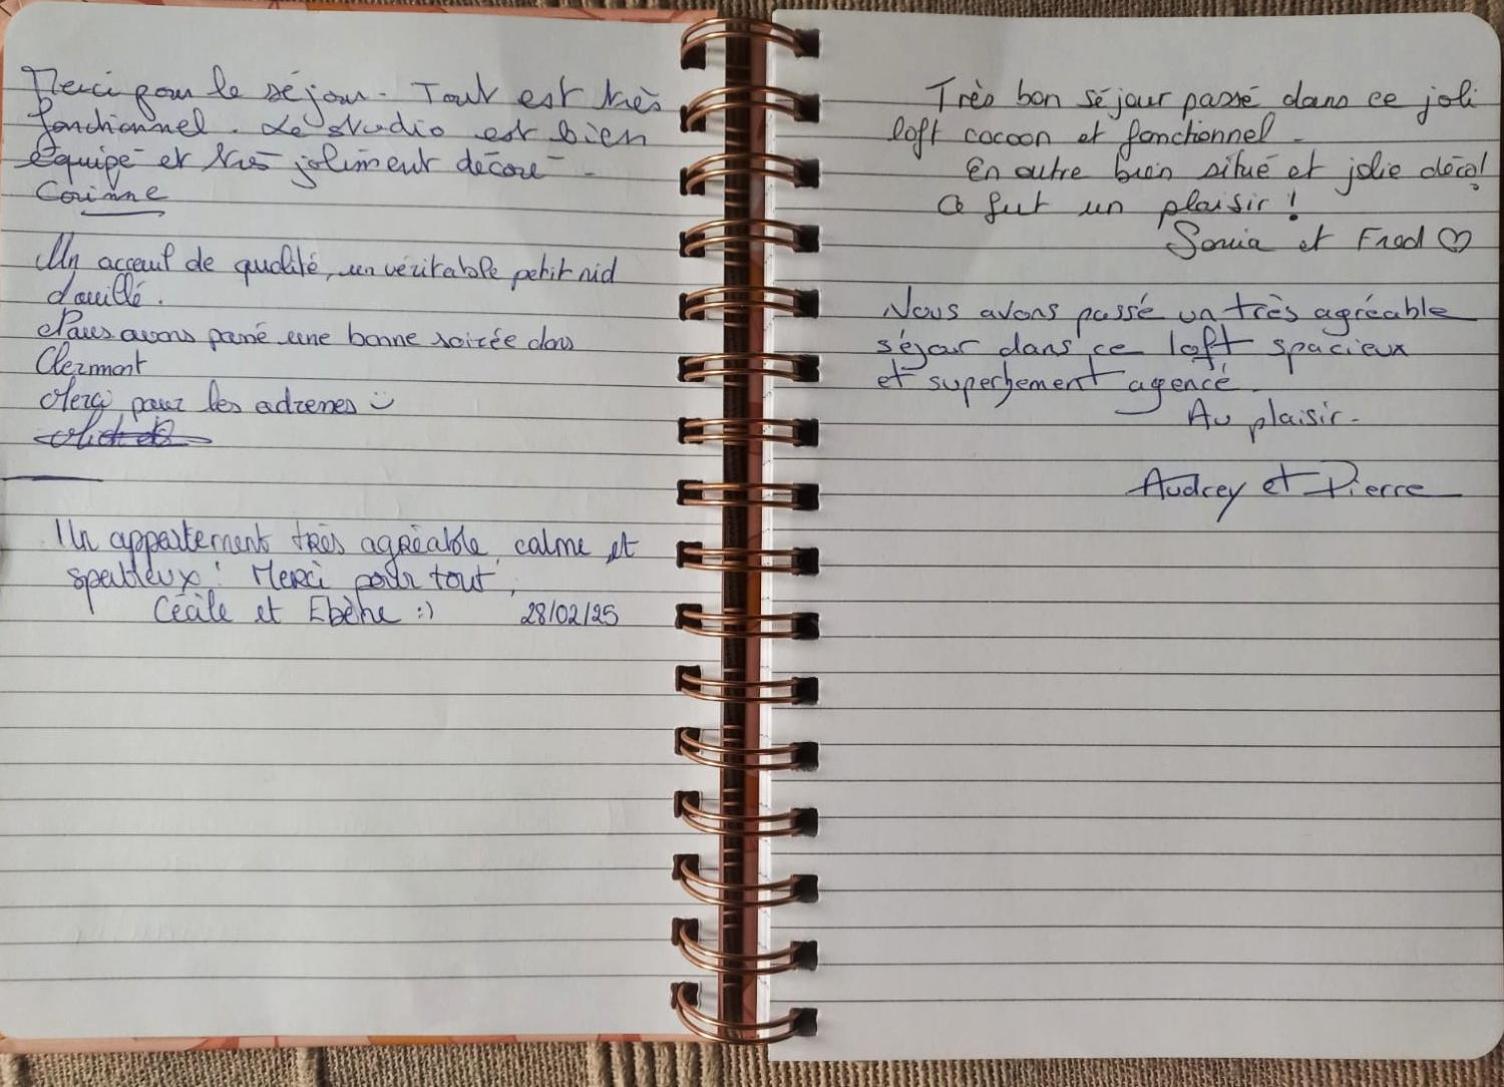 Merci pour le séjour. Tout est très
fonctionnel. Le studio est bien
équipé et très joliment décoré.
Corinne
Un acceuil de qualité, un véritable petit nid
douillé.
Nous avons passé une bonne soirée dans
Clermont
Merci pour les adresses :)
Un appartement très agréable, calme et
spatieux! Merci pour tout,
Cécile et Ebène :) 28/02/25
Très bon séjour passé dans ce joli
loft cocoon et fonctionnel.
En outre bien situé et jolie déco!
Ce fut un plaisir!
Sonia et Fred ♡
Nous avons passé un très agréable
séjour dans ce loft spacieux
et superbement agencé.
Au plaisir.
Audrey et Pierre